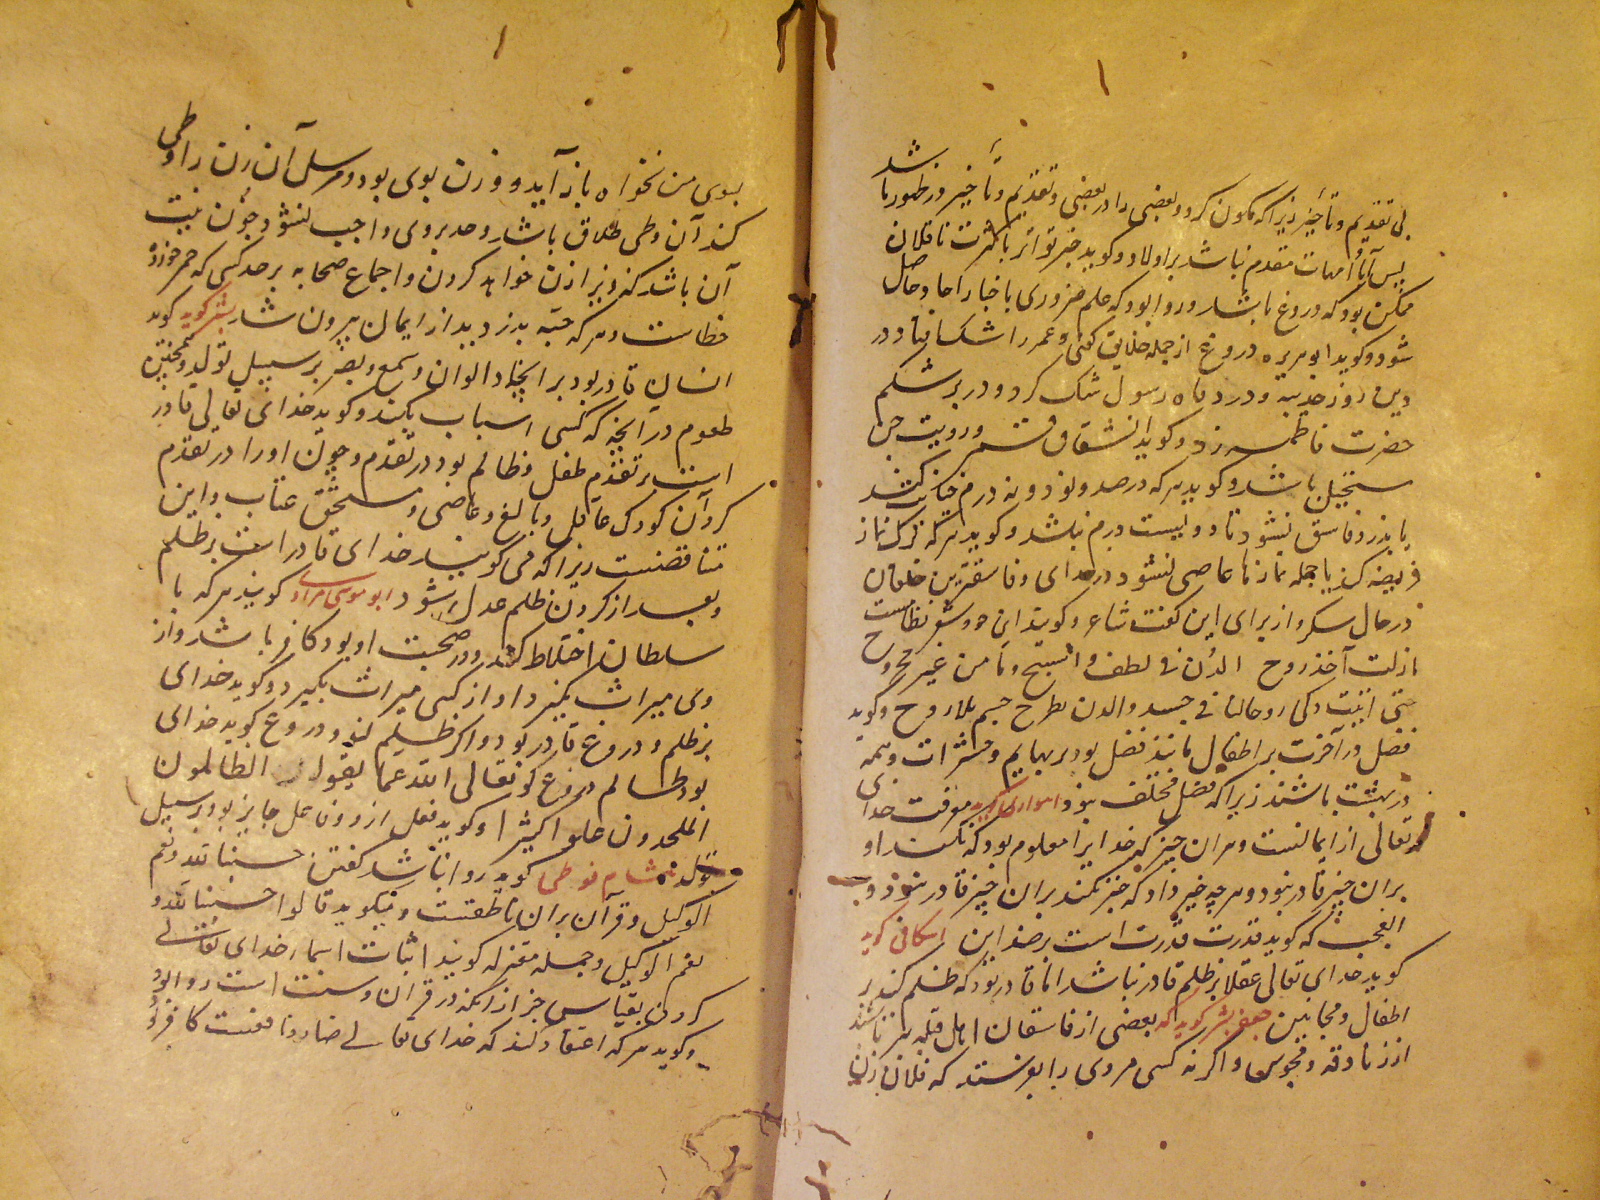 بی تقدیم و تأخیر زیرا که مکون کرد و بعضی را در بعضی و تقدیم و تأخیر در ظهور باشد
پس آبا و امهات مقدم نباشد بر اولاد و کوید خبر تواتر با کثرت ناقلان
ممکن بود که دروغ باشد و روا بود که علم ضروری باخبار احاد حاصل
شود و کوید ابو هریره دروغ از جمله خلایق کفتی و عمر را شک افتاد در
دین روز حدیبیه و در وفاه رسول شک کرد و در بر شکم
حضرت فاطمه زد و کوید انشقاق قمر و رویت جن
مستحیل باشد و کوید هر که در صد و نود و نه درم خیانت کند
یا بدزد فاسق نشود تا دویست درم نباشد و کوید هر که ترک نماز
فریضه کند یا جمله نمازها عاصی نشود در خدای و فاسقترین خلقان
در حال سکر و از برای این کفت شاعر و کوید این دو شعر نظامست
ما زلت آخذ روح الدن فی لطف و استبیح دما من غیر مجروح
حتی انثنیت ولی روحان فی جسد والدن مطرح جسم بلا روح و کوید
فضل در آخرت بر اطفال مانند فضل بود بر بهایم و حشرات و همه
در بهشت باشند زیرا که فضل مختلف نبود اسواری کوید معرفت خدای
تعالی از ایمانست و هر ان چیز که خدایرا معلوم بود که نکند او
بران چیز قادر نبود و هر چه خبر داد که خبر نکند بران چیز قادر نبود و
العجب که کوید قدرت قدرت است بر ضد این اسکافی کوید
کوید خدای تعالی عقلا بر ظلم قادر نباشد اما قادر بود که ظلم کند بر
اطفال و مجانین جعفر بشر کوید که بعضی از فاسقان اهل قبله بتر باشند
از زنادقه و مجوس و اکر نه کسی مروی را بفرستد که فلان زن
بسوی من بخواه باز آید و زن بوی بود و مرسل آن زن را وطی
کند آن وطی طلاق باشد و حد بر وی واجب نشود چون نیت
آن باشد که ویرا زن خواهد کردن و اجماع صحابه بر حد کسی که خمر خورد
خطاست و هر که حبه بدزدید از ایمان بیرون شد بشر کوید کوید
انسان قادر بود بر ایجاد الوان و سمع و بصر بر سبیل تولد و همچنین
طعوم در آنچه که کسی اسباب بکند و کوید خدای تعالی قادر
است بر تعذیب طفل و ظالم بود در تعذیب و چون او را در تعذیب
کرد آن کودک عاقل و بالغ و عاصی و مستحق عتاب و این
متناقضست زیرا که می کویند خدای قادر است بر ظلم
و بعد از کردن ظلم عدل شود ابو موسی مراد کوید هر که با
سلطان اختلاط کند و در صحبت او بود کافر باشد و از
وی میراث نکیرد و او از کسی میراث نکیرد و کوید خدای
بر ظلم و دروغ قادر بود و اکر ظلم کند و دروغ کوید خدای
بود ظالم دروغ کو تعالی الله عما یقول الظالمون
الملحدون علوا کبیرا و کوید فعل از دو فاعل جایز بود بر سبیل
تولد هشام فوطی کوید روا نباشد کفتن حسبنا الله و نعم
الوکیل و قرآن بران ناطقست و میکوید قالوا حسبنا الله و
نعم الوکیل و جمله معتزله کویند اثبات اسما خدای تعالی
کردن بقیاس جز از انکه در قرآن و سنت است روا بود
و کوید هر که اعتقاد کند که خدای تعالی ضار و نافعست کافر بود